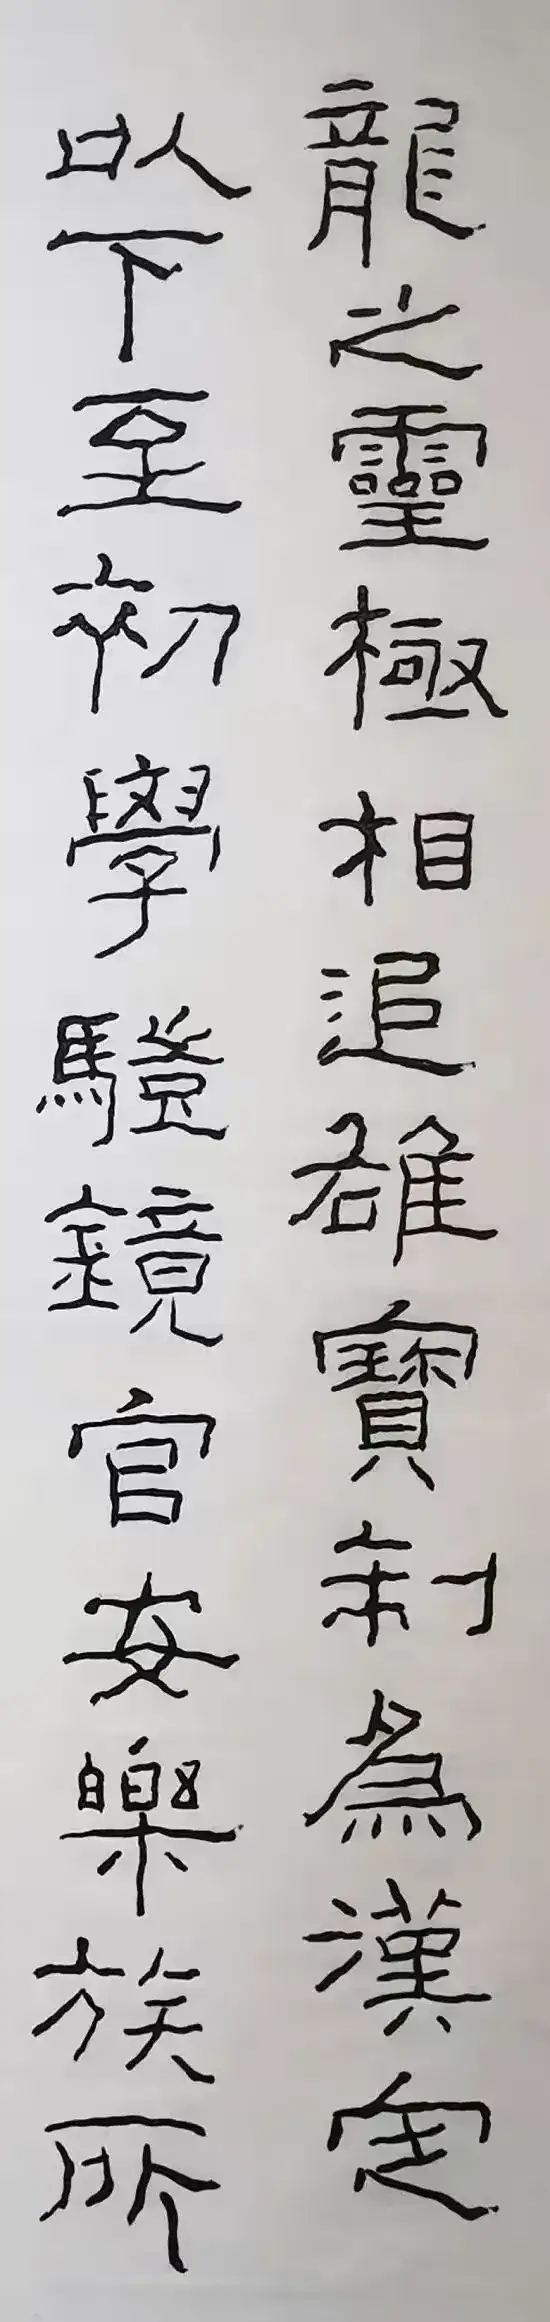 龍之靈極相追雄寶制為漢定
以下至初學驢鏡官安樂族所